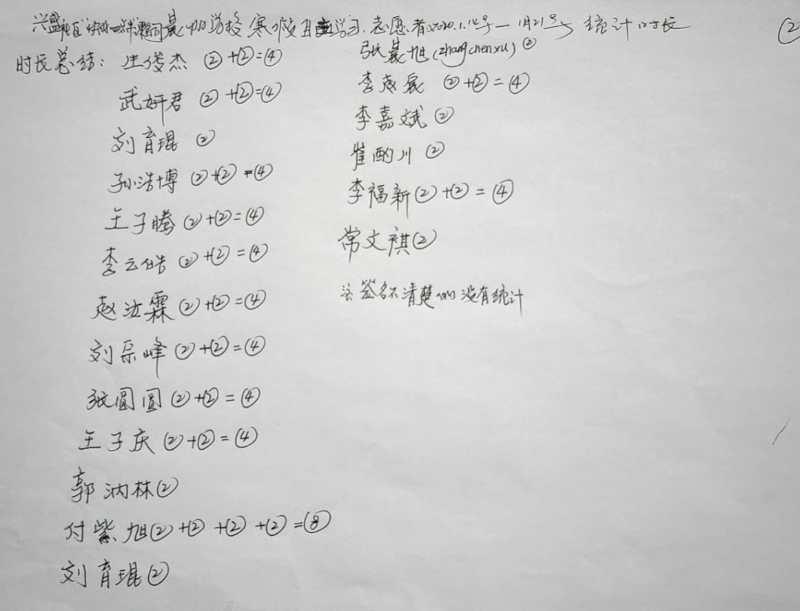 志愿者2020.1.12号—1月21号 统计时长
②
时长总结: 生俊杰 ②+②=④
武妍君 ②+②=④
刘育琨 ②
孙浩博 ②+②=④
王子腾 ②+②=④
李云皓 ②+②=④
赵汝霖 ②+②=④
刘乐峰 ②+②=④
张圆圆 ②+②=④
王子庆 ②+②=④
郭汭林 ②
付紫旭 ②+②+②+②=⑧
刘育琨 ②
张晨旭(zhangchenxu) ②
李彧宸 ②+②=④
李嘉斌 ②
崔酌川 ②
李福新 ②+②=④
常文祺 ②
注 签名不清楚的没有统计